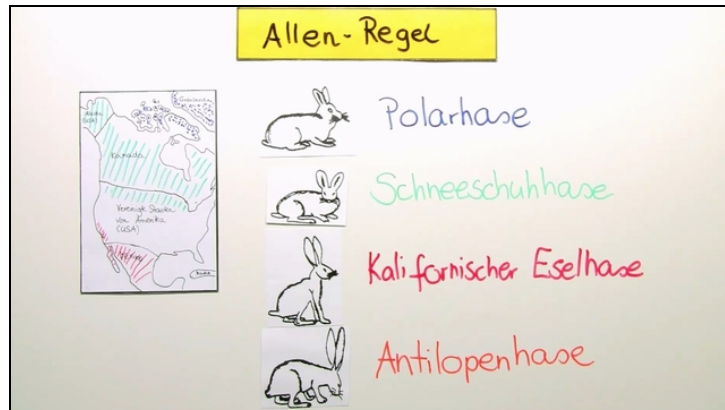 Allen-Regel
Kanada
Vereinigte Staaten
von Amerika
(USA)
Polarhase
Schneeschuhhase
Kalifornischer Eselhase
Antilopenhase